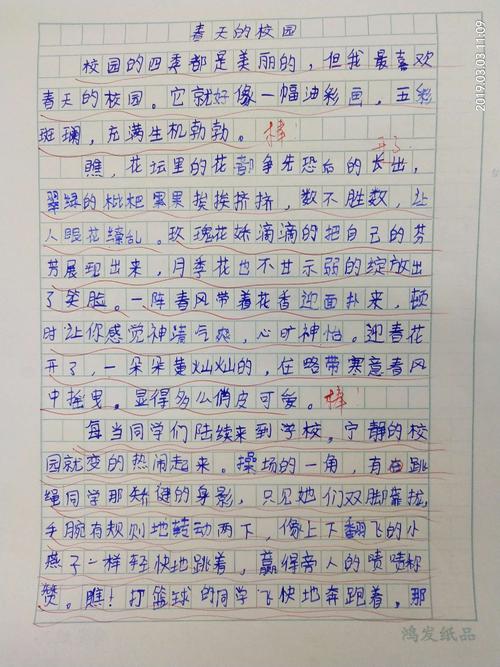 春天的校园
校园的四季都是美丽的，但我最喜欢
春天的校园。它就好像一幅油彩画，五彩
斑斓，充满生机勃勃。棒
开了
瞧，花坛里的花都争先恐后的长出，
翠绿的枇杷累累挨挨挤挤，数不胜数，让
人眼花缭乱。玫瑰花娇滴滴的把自己的芳
芳展现出来，月季花也不甘示弱的绽放出
了笑脸。一阵春风带着花香迎面扑来，顿
时让你感觉神清气爽，心旷神怡。迎春花
开了，一朵朵黄灿灿的，在略带寒意春风
中摇曳。显得多么俏皮可爱。棒
每当同学们陆续来到学校。宁静的校
园就变的热闹起来。操场的一角，有跳
绳同学那矫健的身影，只见她们双脚靠拢，
手腕有规则地转动两下，像上下翻飞的小
燕子一样轻快地跳着，赢得旁人的啧啧称
赞。瞧！打篮球的同学飞快地奔跑着，那
鸿发纸品
2019.03.03 11:09